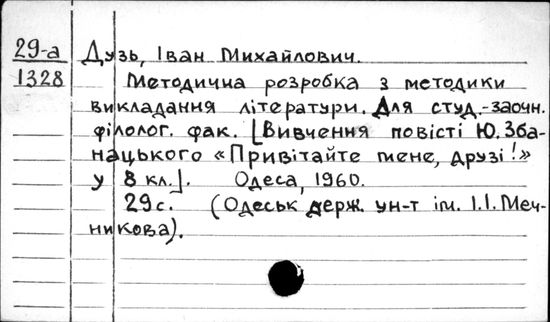 29-а Дузь, Іван Михайлович.
1328 Методична розробка з методики
викладання літератури. Для студ.-заочн.
філолог. фак. [Вивчення повісті Ю. Зба-
нацького «Привітайте мене, друзі!»
у 8 кл.]. Одеса, 1960.
29с. (Одеськ держ. ун-т ім. І.І. Меч-
никова).